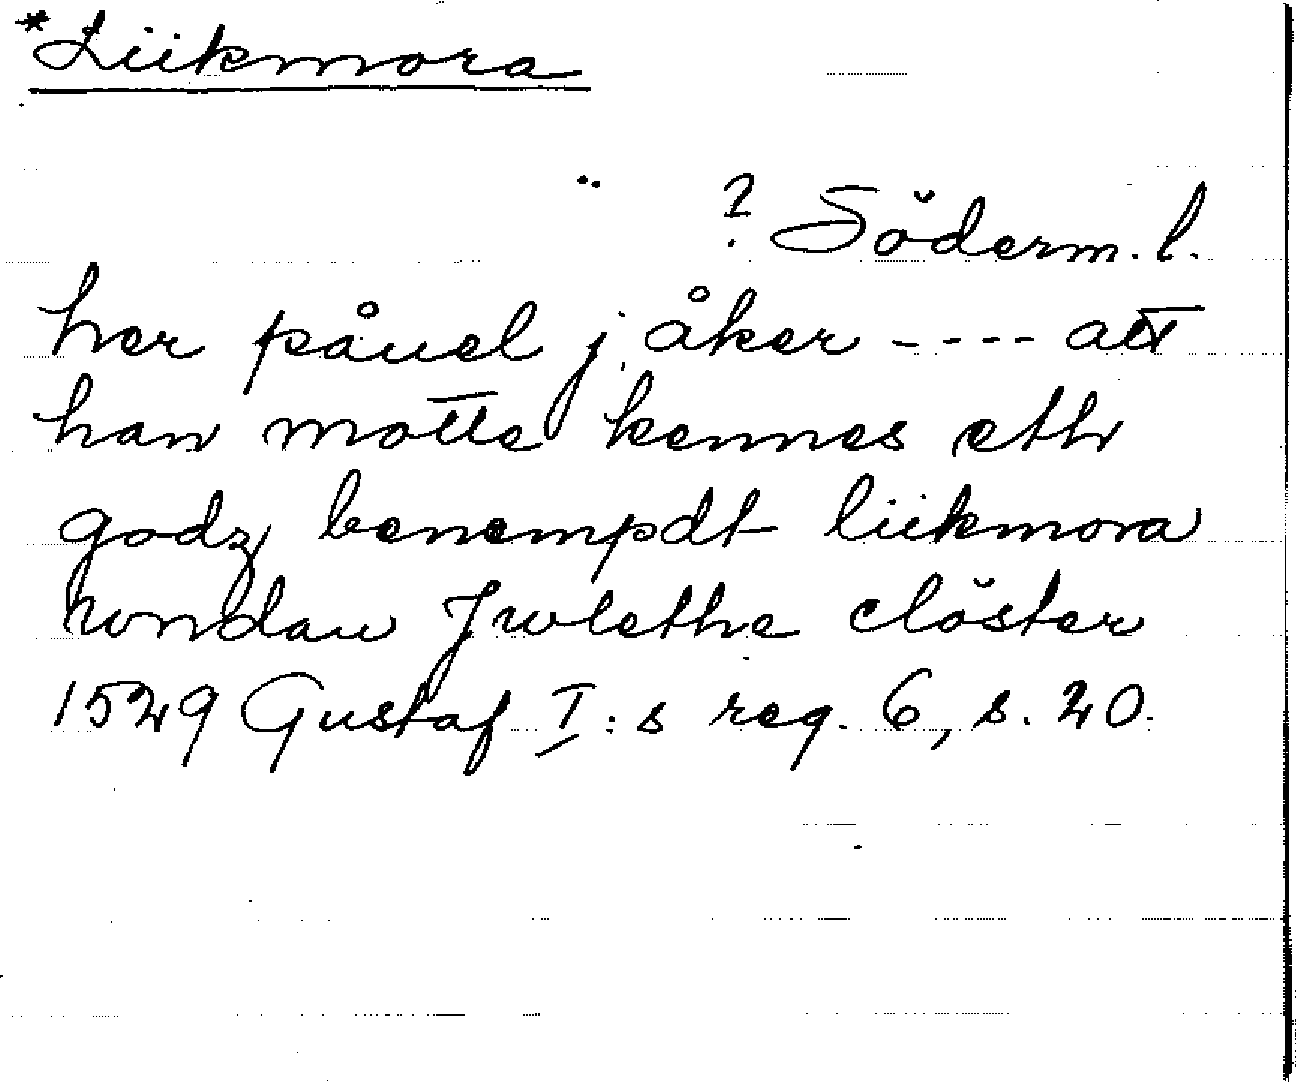 *Liikmora
? Söderm. l.
her påuel j åker ---- att
han motte kennes eth
godz benempdt liikmora
wndan Jwlethe clöster
1529 Gustaf I:s reg. 6, s. 20.